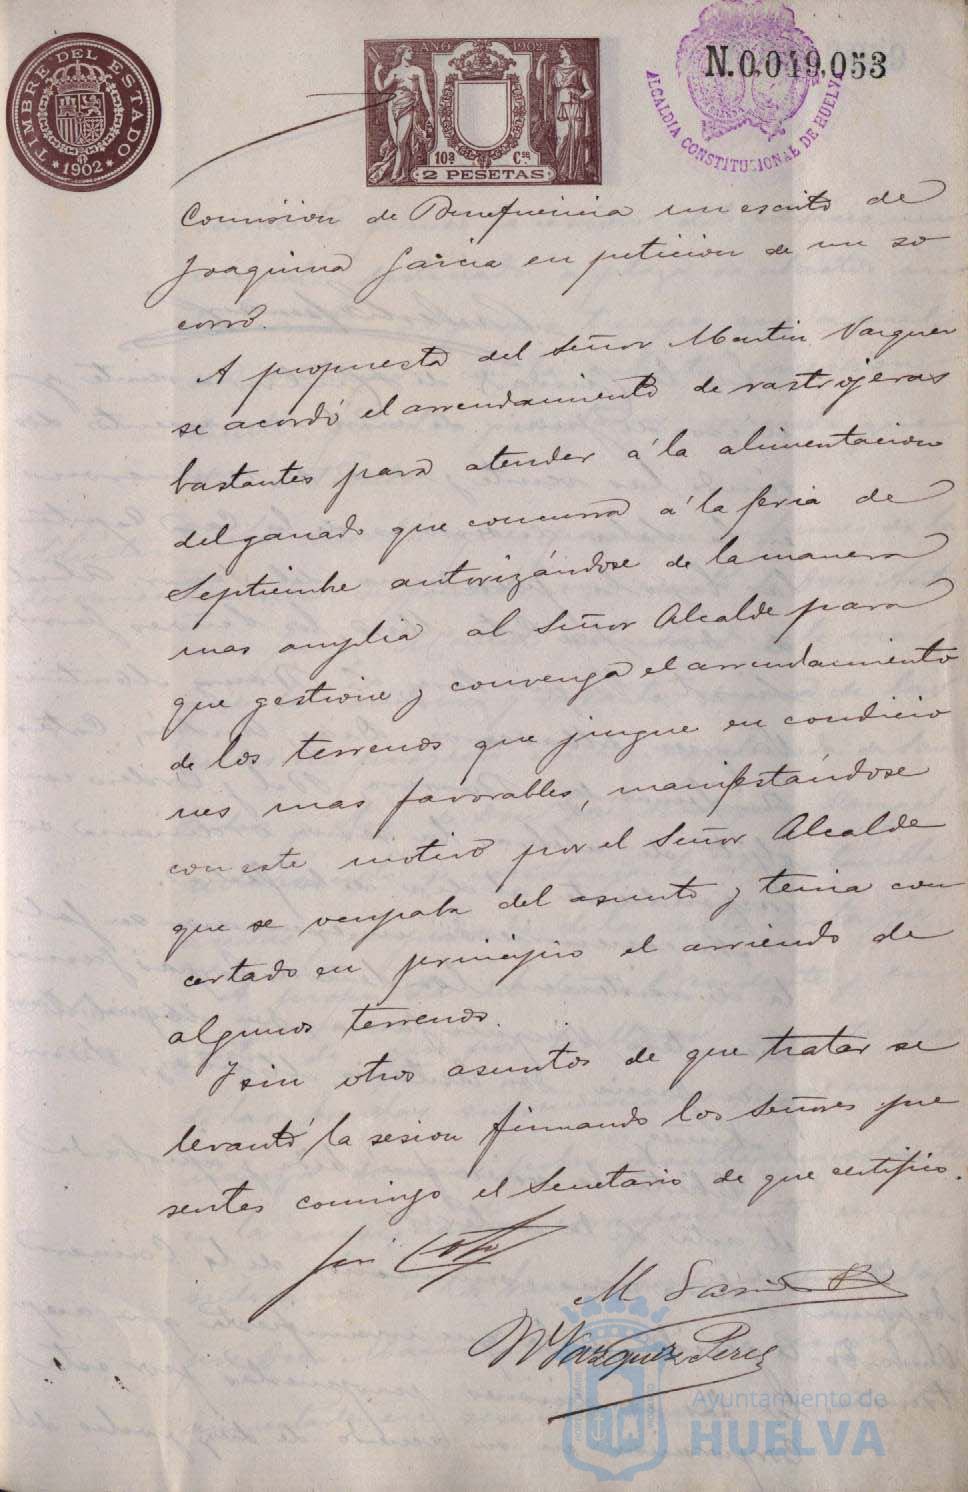 TIMBRE DEL ESTADO
* 1902 *
AÑO 1902
10ª Cse
2 PESETAS
ALCALDIA CONSTITUCIONAL DE HUELVA
N.0.049,053
Comision de Beneficencia un escrito de
Joaquina Garcia en peticion de un so
corro.
A propuesta del Señor Martin Vazquez
se acordó el arrendamiento de rastrojeras
bastantes para atender á la alimentacion
del ganado que concurra á la feria de
Septiembre autorizándose de la manera
mas amplia al Señor Alcalde para
que gestione y convenga el arrendamiento
de los terrenos que juzgue en condicio
nes mas favorables, manifestándose
con este motivo por el Señor Alcalde
que se ocupaba del asunto y tenia con
certado en principio el arriendo de
algunos terrenos.
Y sin otros asuntos de que tratar se
levantó la sesion firmando los Señores pre
sentes conmigo el Secretario de que certifico.
M Garcia
M Vazquez Perez
Ayuntamiento de
HUELVA